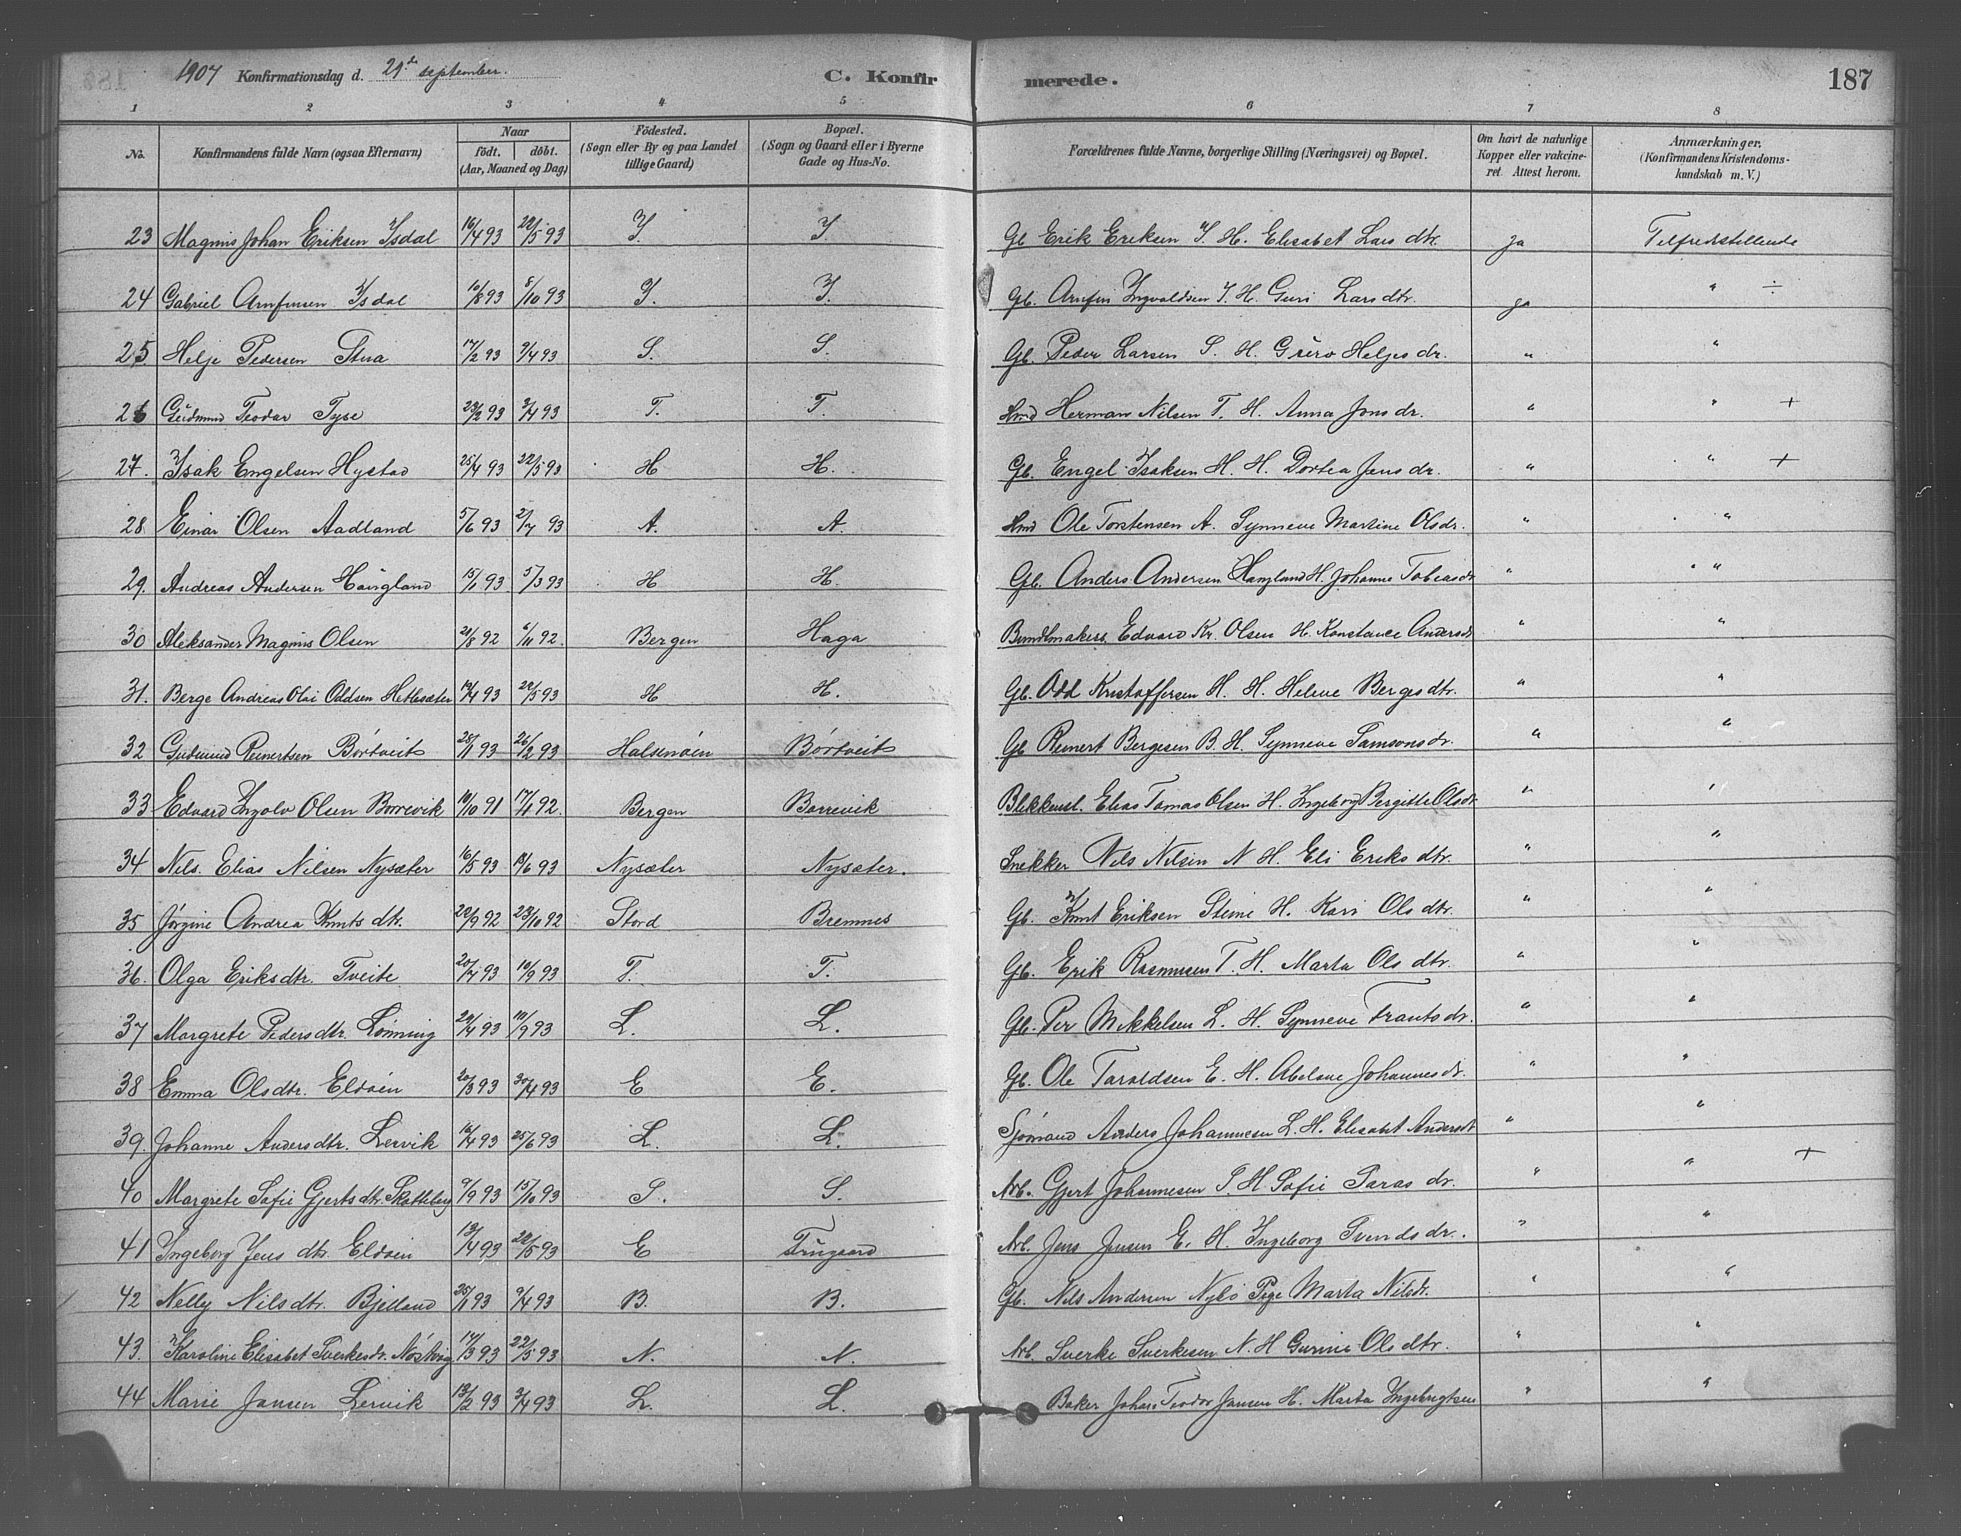 1907 Konfirmationsdag d. 29de september. C. Konfirmerede. 187
1 2 3 4 5 6 7 8
No. Konfirmandens fulde Navn (ogsaa Efternavn) Naar födt. döbt. (Aar, Maaned og Dag) Födested. (Sogn eller By og paa Landet tillige Gaard) Bopæl. (Sogn og Gaard eller i Byerne Gade og Hus-No. Forældrenes fulde Navne, borgerlige Stilling (Næringsvei) og Bopæl. Om havt de naturlige Kopper eller vakcineret. Attest herom. Anmærkninger. (Konfirmandens Kristendomskundskab m. V.)
23 Magnus Johan Eriksen Isdal 16/4 93 22/5 93 I. I. Gb Erik Eriksen I. H. Elisabet Lars dtr. ja Tilfredsstillende
24 Gabriel Arnfinsen Isdal 10/8 93 8/10 93 I. I. Gb. Arnfin Ingvaldsen I. H. Guri Lars dtr. ja " ÷
25 Helje Pedersen Stua 17/2 93 9/4 93 S. S. Gb. Peder Larsen S. H. Guro Heljes dr. " "
26 Gudmund Teodor Tyse 23/2 93 3/4 93 T. T. Hmd Herman Nilsen T. H. Anna Jons dr. " " +
27. Isak Engelsen Hystad 25/4 93 22/5 93 H H. Gb. Engel Isaksen H. H. Dortea Jens dr. " " +
28. Einar Olsen Aadland 5/6 93 2/7 93 A. A. Hmd Ole Torstensen A. Synneve Martine Olsdr. " "
29. Andreas Andersen Haugland 15/1 93 5/3 93 H H. Gb. Anders Andersen Haugland H. Johanne Tobiasdr " "
30 Aleksander Magnus Olsen 21/8 92 6/11 92. Bergen Haga Bundtmakers. Edvard Kr. Olsen H. Konstance Andersdr " "
31. Berge Andreas Olai Oddsen Hetlesæter 19/4 93 22/5 93 H H. Gb. Odd Kristoffersen H. H. Helene Bergesdtr. " "
32 Gudmund Reinertsen Börtveit 28/1 93 26/2 93 Halsenöen Börtveit Gb Reinert Bergesen B. H. Synneve Samsonsdr. " "
33 Edvard Ingolv Olsen Borrevik 10/10 91 17/1 92. Bergen Borrevik Blikkensl. Elias Tomas Olsen H. Ingeborg Bergitte Olsdr " "
34 Nils Elias Nilsen Nysæter 16/5 93 18/6 93 Nysæter Nysæter. Snekker Nils Nilsen N H. Eli Eriks dtr. " "
35 Jørgine Andrea Knuts dtr. 22/9 92 23/10 92 Stord Bremnes Gb. Knut Eriksen Stene H. Kari Ols dtr. " "
36. Olga Eriks dtr. Tveite 20/7 93 10/9 93 T. T. Gb. Erik Rasmussen T. H. Marta Ols dtr. " "
37 Margrete Peders dtr. Lönning 29/4 93 10/9 93 L. L. Gb. Per Mikkelsen L. H. Synneve Frants dr. " "
38 Emma Ols dtr. Eldöen 20/3 93 30/4 93 E E. Gb. Ole Taraldsen E. H. Abelone Johannesdr. " "
39. Johanne Anders dtr. Lervik 16/4 93 25/6 93 L. L. Sjömand Anders Johannesen L. H. Elisabet Andersdr " "
40 Margrete Sofie Gjerts dtr. Skotteberg 9/9 93 15/10 93 S. S. Arb. Gjert Johannesen S. H. Sofie Saras dr. " " +
41 Ingeborg Jens dtr. Eldöen 13/4 93 22/5 93 E Frugaard Arb. Jens Jensen E. H. Ingeborg Svends dr. " "
42 Nelly Nils dtr. Bjelland 25/1 93 9/4 93 B. B. Gb. Nils Andersen Nybö Pige Marta Nilsdr. " "
43. Karoline Elisabet Sverkesdr. Nöstvåg 14/3 93 22/5 93 N. N. Arb. Sverke Sverkesen N. H Gurine Ols dtr. " "
44 Marie Jansen Lervik 13/2 93 3/4 93 L. L. Baker Johan Teodor Jansen H. Marta Ingebrigtsen " "